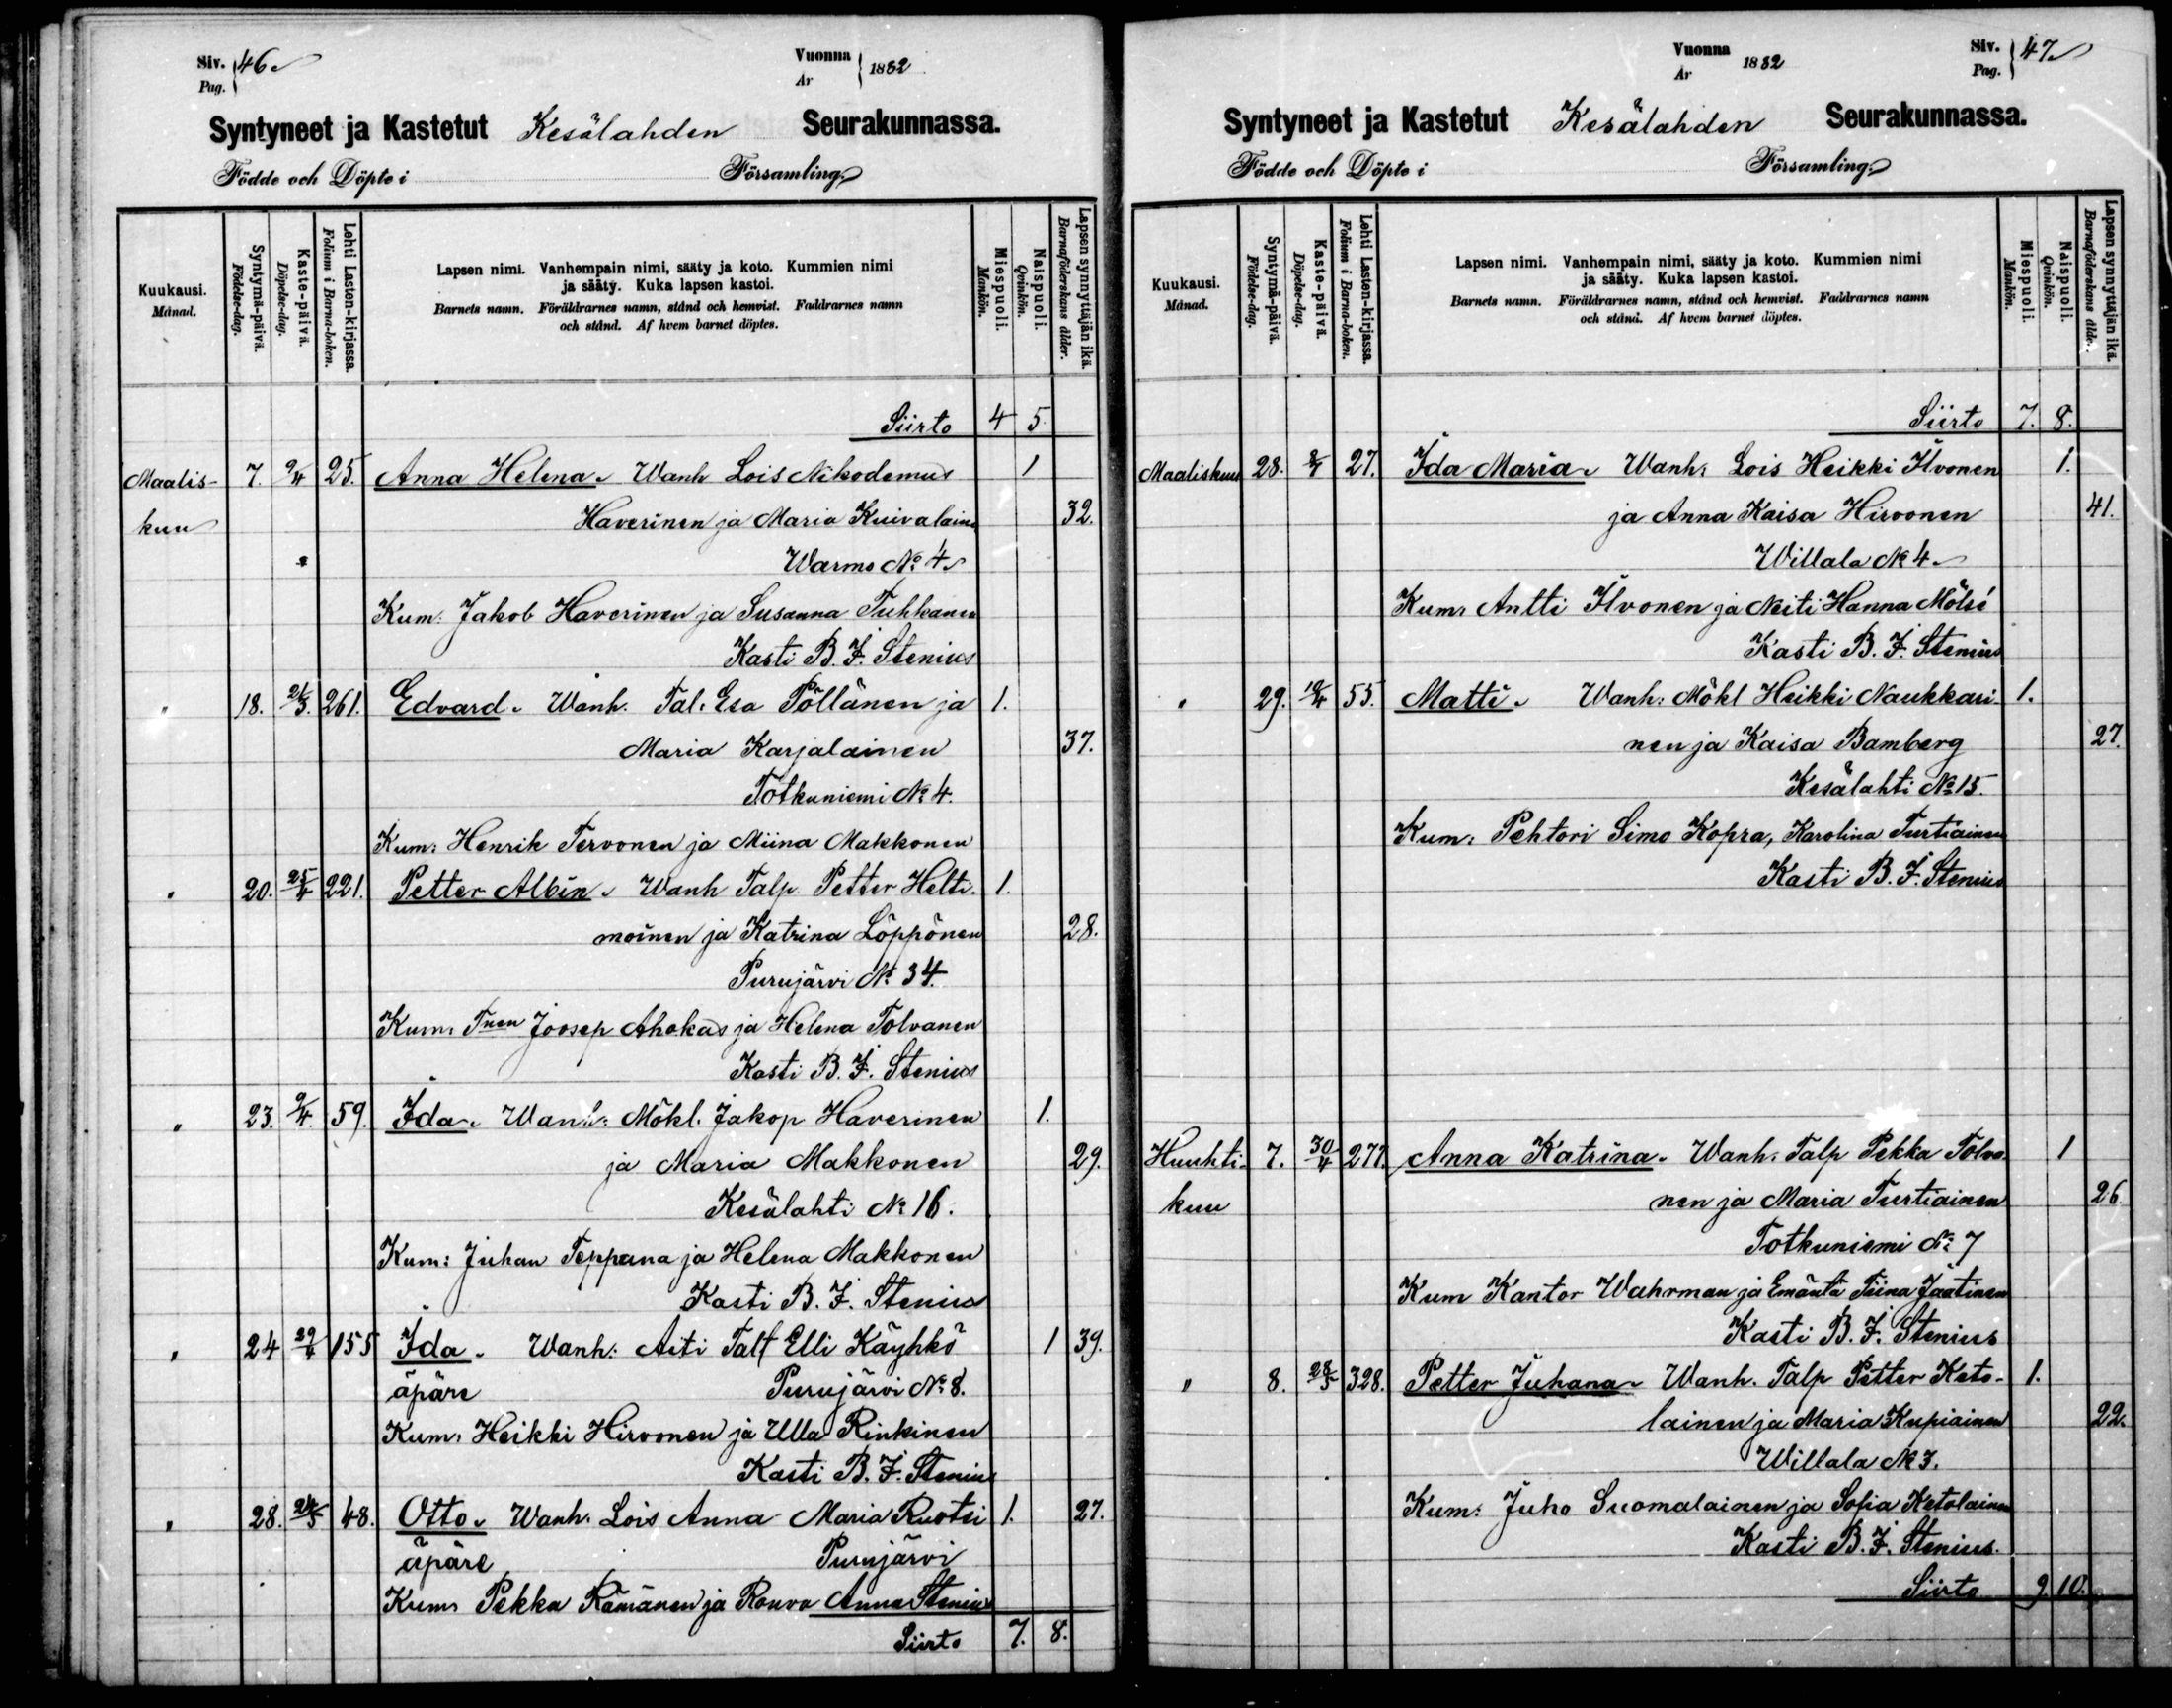 Siv. Pag. 46
Vuonna År 1882
Syntyneet ja Kastetut Kesälahden Seurakunnassa.
Födde och Döpte i Församling.
Kuukausi. Månad.
Syntymä-päivä. Födelse-dag.
Kaste-päivä. Döpelse-dag.
Lehti Lasten-kirjassa. Folium i Barna-boken.
Lapsen nimi. Vanhempain nimi, sääty ja koto. Kummien nimi
ja sääty. Kuka lapsen kastoi.
Barnets namn. Föräldrarnes namn, stånd och hemvist. Faddrarnes namn
och stånd. Af hvem barnet döptes.
Miespuoli. Mankön.
Naispuoli. Qvinkön.
Lapsen synnyttäjän ikä. Barnaföderskans ålder.
Siirto 4 5
Maalis- 7. 9/4 25. Anna Helena. Wanh Lois Nikodemus 1
kuu Haverinen ja Maria Kuivalain 32.
Warmo No 4
Kum: Jakob Haverinen ja Susanna Tuhkanen
Kasti B. F. Stenius
" 18. 21/3. 261. Edvard. Wanh. Tal. Esa Pöllänen ja 1.
Maria Karjalainen 37.
Totkuniemi No 4.
Kum: Henrik Tervonen ja Miina Makkonen
" 20. 25/4 221. Petter Albin. Wanh Talp. Petter Helti- 1.
moinen ja Katrina Löppönen 28.
Purujärvi No 34.
Kum: Tnen Joosep Ahokas ja Helena Tolvanen
Kasti B. F. Stenius
" 23. 9/4. 59. Ida. Wanh: Mökl. Jakop Haverinen 1.
ja Maria Makkonen 29.
Kesälahti No 16.
Kum: Juhan Teppana ja Helena Makkonen
Kasti B. F. Stenius
" 24 29/4 155 Ida. Wanh: Aiti Talt Elli Käyhkö 1 39.
äpäre Purujärvi No 8.
Kum: Heikki Hirvonen ja Ulla Rinkinen
Kasti B. F. Stenius
" 28. 24/5 48. Otto. Wanh. Lois Anna Maria Ruotsi 1. 27.
äpäre Purujärvi
Kum Pekka Rämänen ja Rouva Anna Stenius
Siirto 7. 8.
Vuonna År 1882
Siv. Pag. 47
Syntyneet ja Kastetut Kesälahden Seurakunnassa.
Födde och Döpte i Församling.
Kuukausi. Månad.
Syntymä-päivä. Födelse-dag.
Kaste-päivä. Döpelse-dag.
Lehti Lasten-kirjassa. Folium i Barna-boken.
Lapsen nimi. Vanhempain nimi, sääty ja koto. Kummien nimi
ja sääty. Kuka lapsen kastoi.
Barnets namn. Föräldrarnes namn, stånd och hemvist. Faddrarnes namn
och stånd. Af hvem barnet döptes.
Miespuoli. Mankön.
Naispuoli. Qvinkön.
Lapsen synnyttäjän ikä. Barnaföderskans ålde.
Siirto 7. 8.
Maaliskuu 28. 27. Ida Maria. Wanh: Lois Heikki Ilvonen 1.
ja Anna Kaisa Hirvonen 41.
Willala No 4
Kum: Antti Ilvonen ja Neiti Hanna Mölsé
Kasti B. F. Stenius
" 29. 10/4 55. Matti. Wanh: Mökl Heikki Naukkari- 1.
nen ja Kaisa Bamberg 27.
Kesälahti No 15.
Kum: Pehtori Simo Kopra, Karolina Turtiainen
Kasti B. F. Stenius
Huuhti- 7. 30/4 277. Anna Katrina. Wanh: Talp Pekka Tolva- 1
kuu nen ja Maria Turtiainen 26
Totkuniemi No 7
Kum Kantor Wahrman ja Emäntä Tiina Jaatinen
Kasti B. F. Stenius
" 8. 28/5 328. Petter Juhana. Wanh. Talp Petter Keto- 1.
lainen ja Maria Kupiainen 22.
Willala No 3.
Kum: Juho Suomalainen ja Sofia Ketolainen
Kasti B. F. Stenius.
Siirto 9. 10.